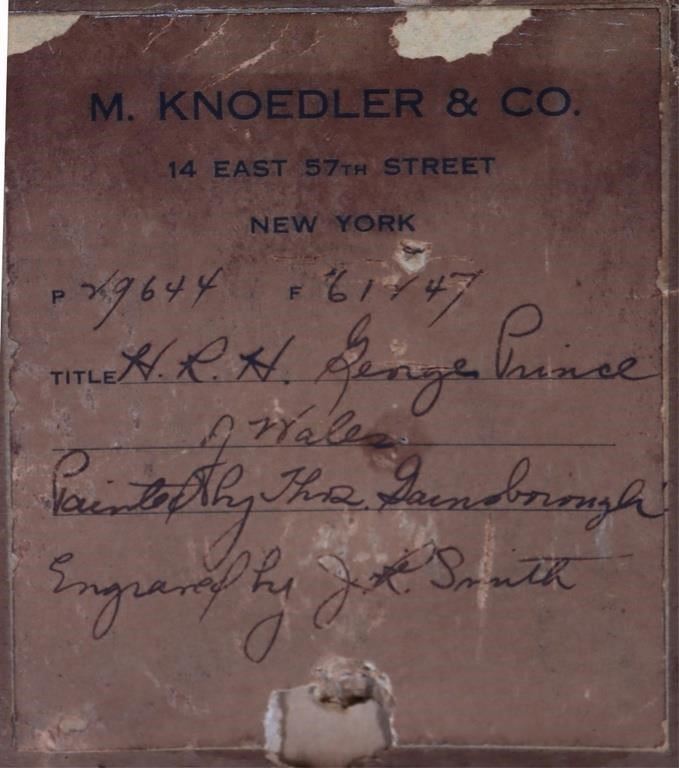 M. KNOEDLER & CO.
14 EAST 57TH STREET
NEW YORK
P 29644 F 61147
TITLE H. R. H. George Prince
of Wales
Painted by Thos. Gainsborough
Engraved by J. R. Smith